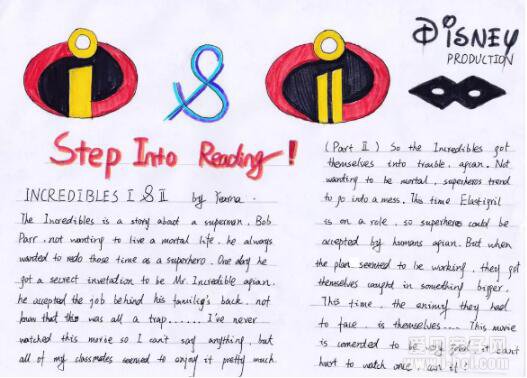 DISNEY
PRODUCTION
i & ii
Step Into Reading!
INCREDIBLES I & II by
The Incredibles is a story about a superman. Bob
Parr. not wanting to live a mortal life. he always
wanted to redo those time as a superhero. One day he
got a secrect invetation to be Mr. Incredible agian.
he accepted the job behind his familig's back. not
know that this was all a trap....... I've never
watched this movie so I can't say anything, but
all of my classmates seemed to enjoy it pretty much
(Part II) So the Incredibles got
themselves into trouble. agian. Not
wanting to be mortal, superheros trend
to go into a mess. This time Elastigril
is on a role, so superheros could be
accepted by humans agian. But when
the plan seemed to be working, they got
themselves caught in something bigger.
This time, the enimy they had
to face. is themselves.... This movie
is comented to be very great it cant
hurt to watch once, can it?